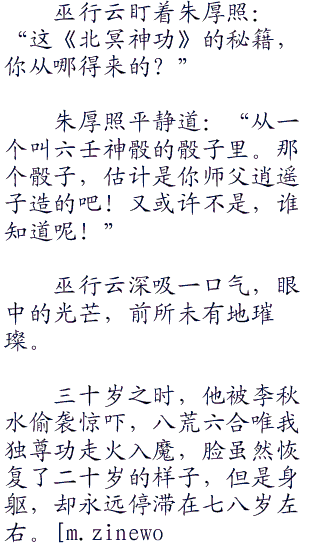 巫行云盯着朱厚照：
“这《北冥神功》的秘籍，
你从哪得来的？”
朱厚照平静道：“从一
个叫六壬神骰的骰子里。那
个骰子，估计是你师父逍遥
子造的吧！又或许不是，谁
知道呢！”
巫行云深吸一口气，眼
中的光芒，前所未有地璀
璨。
三十岁之时，他被李秋
水偷袭惊吓，八荒六合唯我
独尊功走火入魔，脸虽然恢
复了二十岁的样子，但是身
躯，却永远停滞在七八岁左
右。[m.zinewo